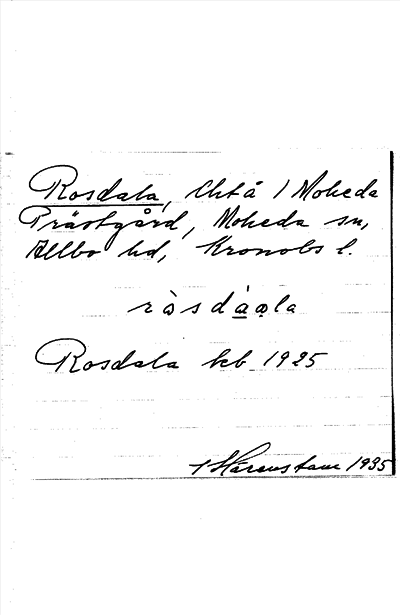 Rosdala, lht å 1 Moheda
Prästgård, Moheda sn,
Allbo hd, Kronobs l.
ròsdàạla
Rosdala kb 1925
Härenstam 1935